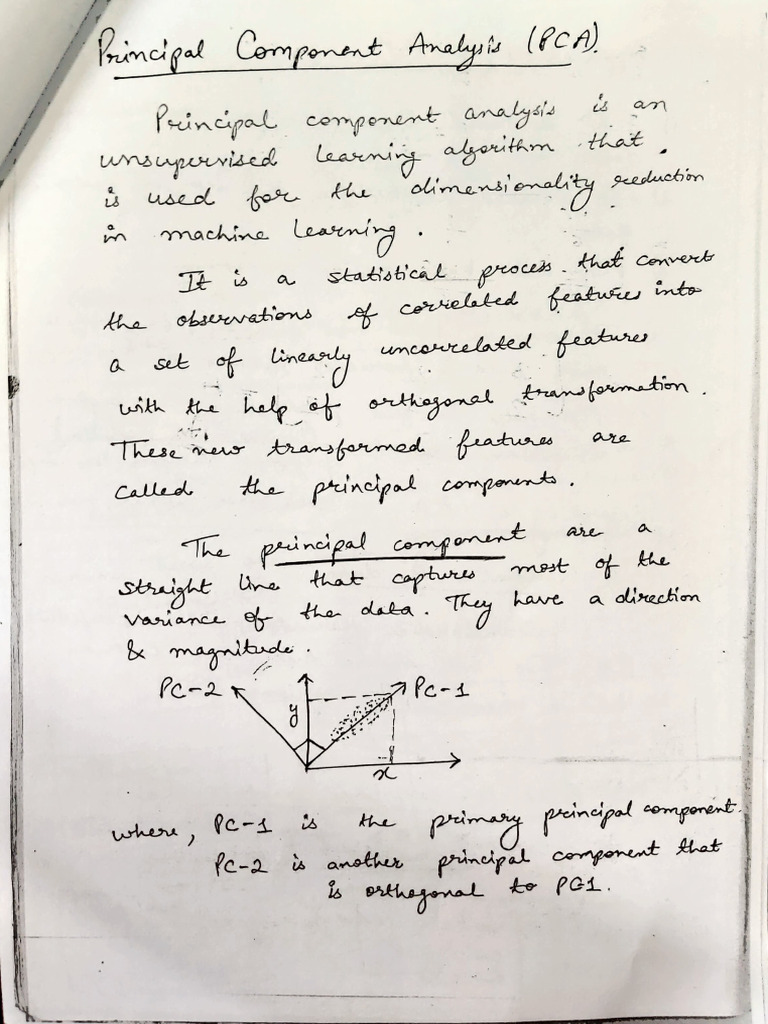 Principal Component Analysis (PCA).
Principal component analysis is an
unsupervised learning algorithm that
is used for the dimensionality reduction
in machine learning.
It is a statistical process that convert
the observations of correlated features into
a set of linearly uncorrelated features
with the help of orthogonal transformation.
These new transformed features are
called the principal components.
The principal component are a
straight line that captures most of the
variance of the data. They have a direction
& magnitude.
PC-2 y PC-1
x
where, PC-1 is the primary principal component.
PC-2 is another principal component that
is orthogonal to PC1.